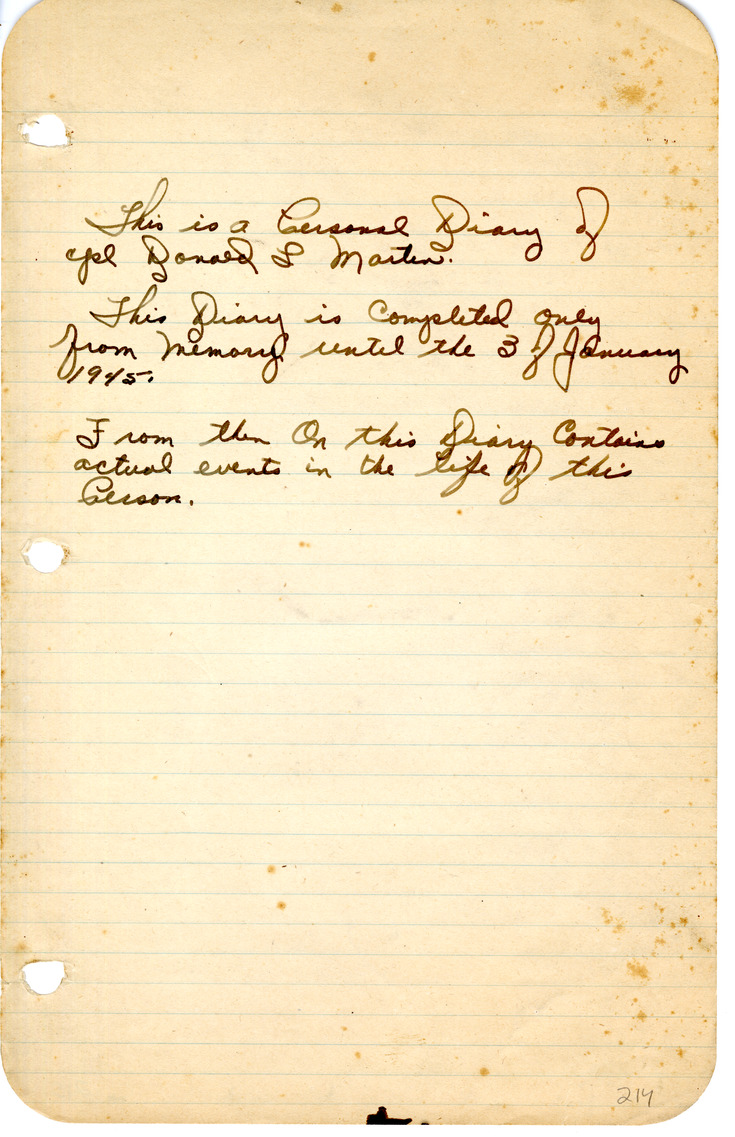 This is a Personal Diary of
cpl Donald S Martin.
This Diary is Completed only
from Memory until the 3 of January
1945.
From then On this Diary Contains
actual events in the life of this
Person.
214